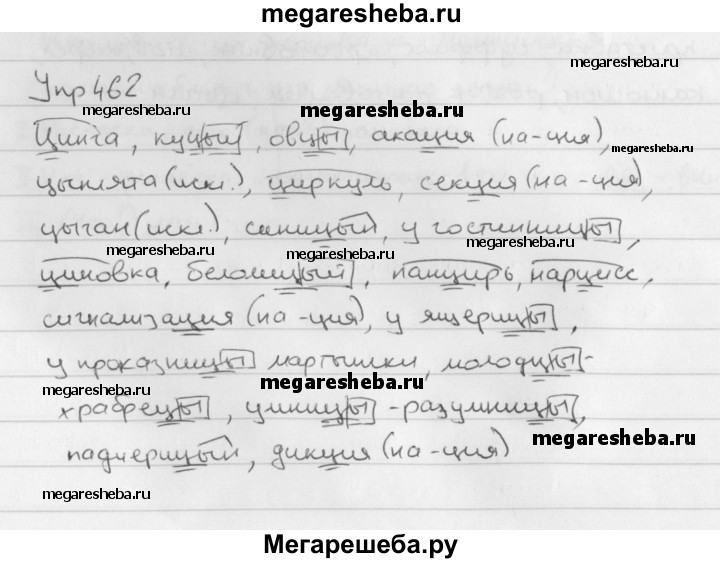 megaresheba.ru
megaresheba.ru
Упр 462
megaresheba.ru
megaresheba.ru
Цинга, куцый, овцы, акация (на -ция),
megaresheba.ru
цыплята (искл.), циркуль, секция (на -ция),
цыган (искл.), синицый, у гостинницы,
megaresheba.ru
megaresheba.ru
циновка, белолицый, панцирь, нарцисс,
сигнализация (на -ция), у ящерицы,
megaresheba.ru
у проказницы мартышки, молодцы-
megaresheba.ru
megaresheba.ru
храбрецы, умницы-разумницы,
megaresheba.ru
падчерицый, дикция (на -ция)
megaresheba.ru
Мегарешеба.ру